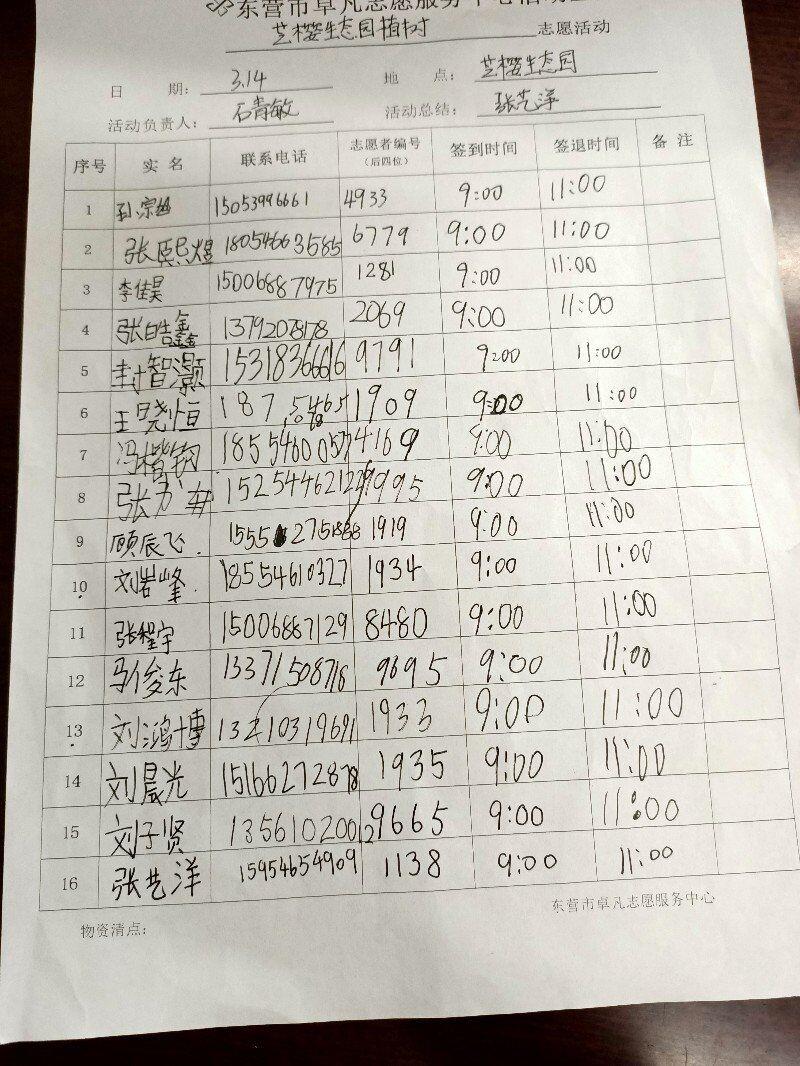 东营市卓凡志愿服务中心活动
艺樱生态园植树 志愿活动
日 期： 3.14 地 点： 艺樱生态园
活动负责人： 石青敏 活动总结： 张艺洋
序号 实名 联系电话 志愿者编号（后四位） 签到时间 签退时间 备注
1 孙宗 15053996661 4933 9:00 11:00
2 张熙煜 18054663585 6779 9:00 11:00
3 李佳昊 15006887975 1281 9:00 11:00
4 张皓鑫 13792078178 2069 9:00 11:00
5 封智灏 15318366616 9791 9:00 11:00
6 王晓恒 187 5465 1909 9:00 11:00
7 冯楷钧 18554600577 4169 9:00 11:00
8 张 15254462122 9995 9:00 11:00
9 顾辰飞. 1555 2751888 1919 9:00 11:00
10 刘岩峰. 18554610327 1934 9:00 11:00
11 张程宇 15006887129 8480 9:00 11:00
12 马俊东 13371508718 9695 9:00 11:00
13 刘鸿博 13210319691 1933 9:00 11:00
14 刘晨光 15166272878 1935 9:00 11:00
15 刘子贤 13561020012 9665 9:00 11:00
16 张艺洋 15954654909 1138 9:00 11:00
东营市卓凡志愿服务中心
物资清点：